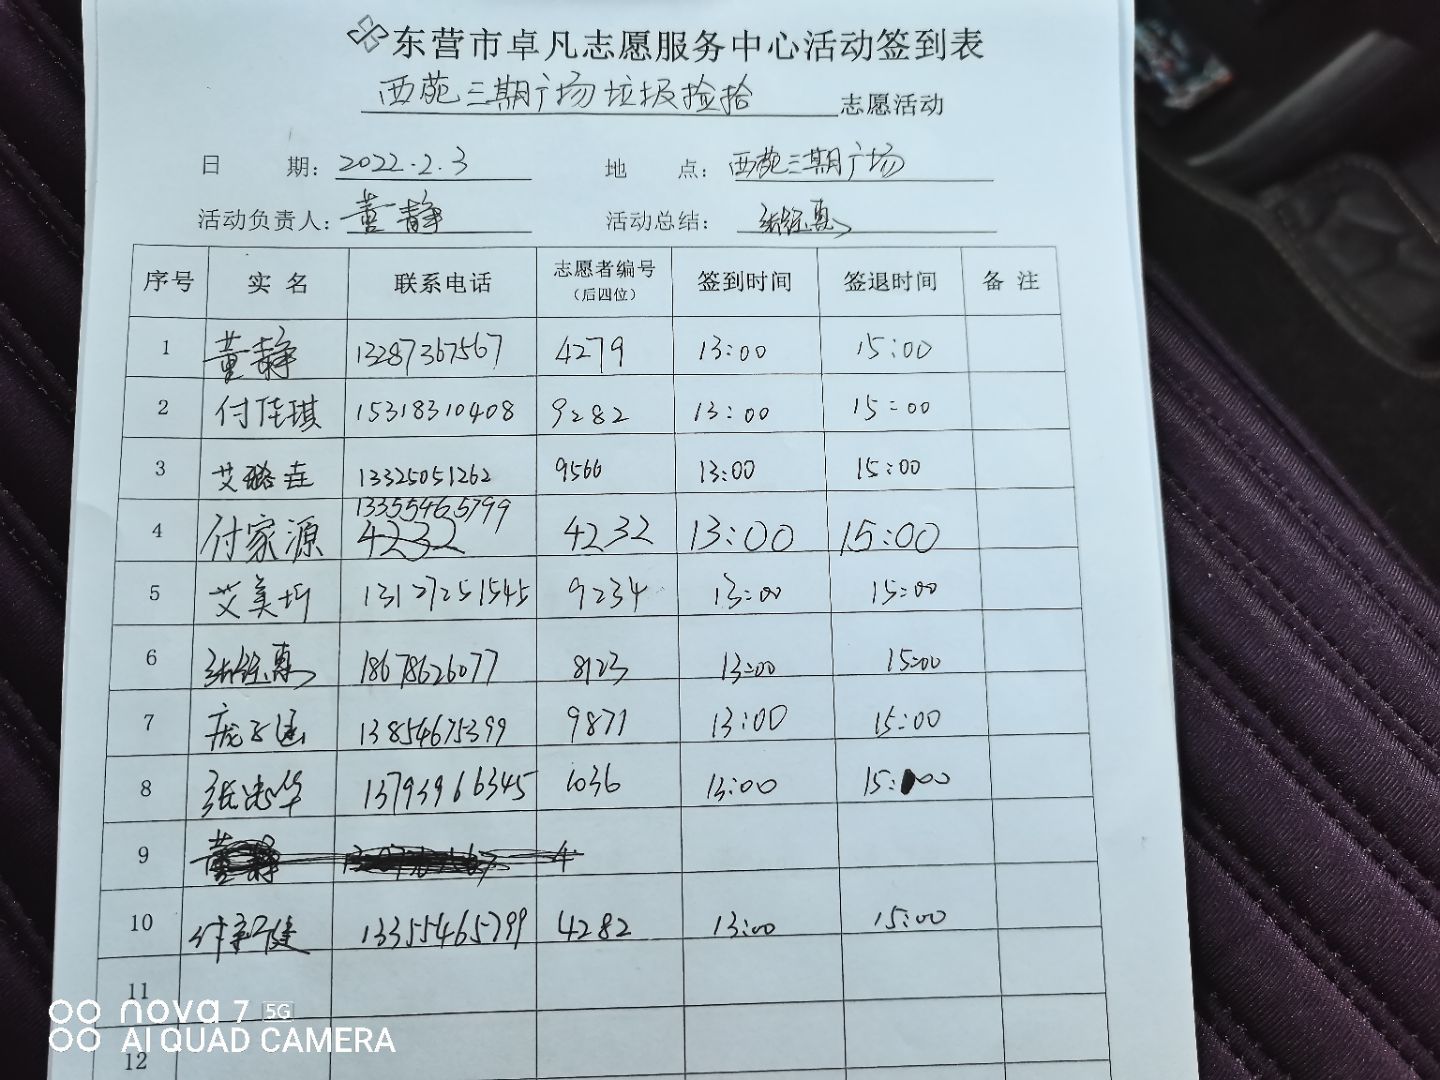 东营市卓凡志愿服务中心活动签到表
西苑三期广场垃圾捡拾 志愿活动
日 期: 2022.2.3 地 点: 西苑三期广场
活动负责人: 董静 活动总结:
序号 实名 联系电话 志愿者编号 (后四位) 签到时间 签退时间 备注
1 董静 13287367567 4279 13:00 15:00
2 付佳琪 15318310408 9282 13:00 15:00
3 艾璐垚 13325051262 9566 13:00 15:00
13355465799
4 付家源 4232 4232 13:00 15:00
5 艾美圻 13127251545 9234 13:00 15:00
6 18678626077 8123 13:00 15:00
7 庞子涵 13854675399 9871 13:00 15:00
8 张忠华 13793966345 1036 13:00 15:00
9 董静 4
10 13355465799 4282 13:00 15:00
11
12
nova 7 5G
AI QUAD CAMERA